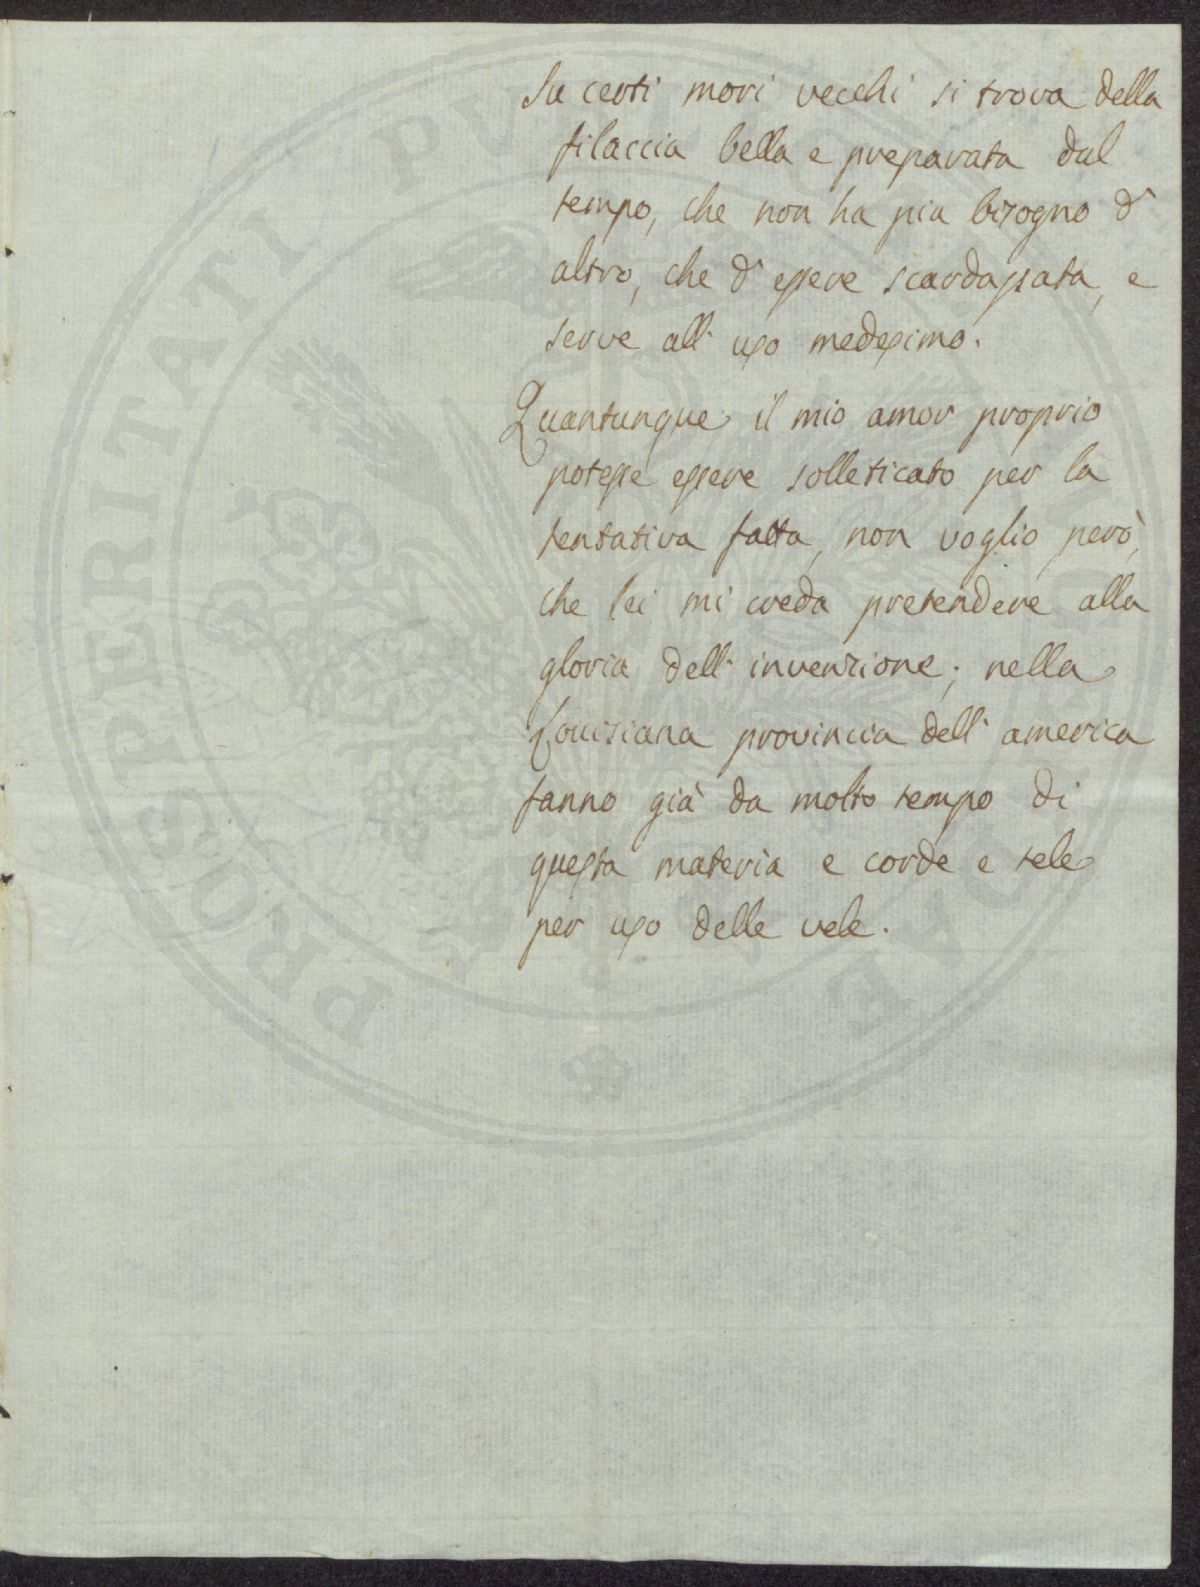 Su certi mori vecchi si trova della
filaccia bella e preparata dal
tempo, che non ha più bisogno d'
altro, che d'essere scardassata, e
serve all'uso medesimo.
Quantunque il mio amor proprio
potesse essere solleticato per la
tentativa fatta, non voglio però,
che lei mi creda pretendere alla
gloria dell'invenzione; nella
Louisiana provincia dell'america
fanno già da molto tempo di
questa materia e corde e tele
per uso delle vele.